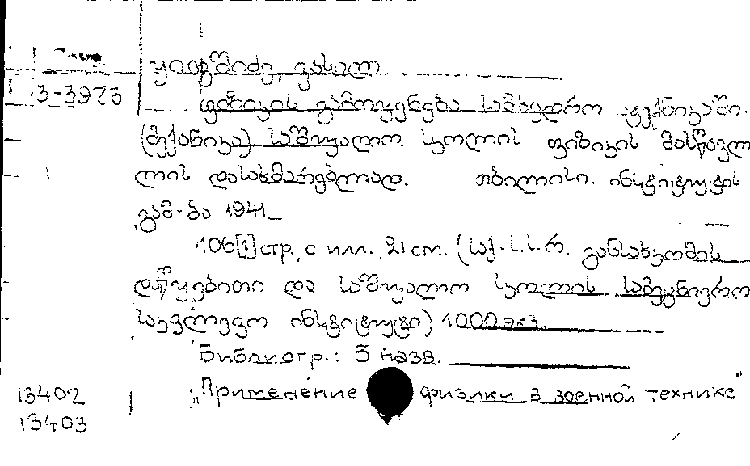 ვასილ
3-3973
ფიზიკის გამოყენება სამხედრო ტექნიკაში.
(მექანიკა) საშუალო სკოლის ფიზიკის მასწავლ
ლის დასახმარებლად. თბილისი. ინსტიტუტის
გამ-ბა 1941_
106[1] стр. с илл. 21 cm. (საქ. ს.ს.რ. განსახკომის
დაწყებითი და საშუალო სკოლის სამეცნიერო
საკვლევო ინსტიტუტი) 1000 экз.
Библиогр.: 5 назв.
13402 "Применение физики в военной технике"
13403